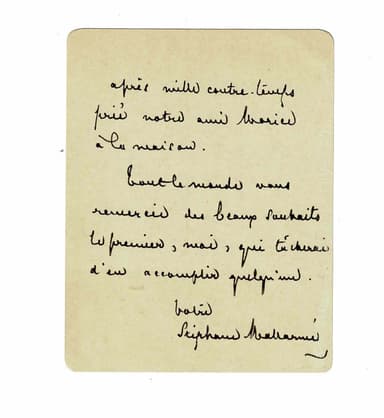 après mille contre-temps
prié notre ami Morice
à la maison.
Tout le monde vous
remercie des beaux souhaits
le premier, moi, qui tâcherai
d'en accomplir quelqu'un.
Votre
Stéphane Mallarmé